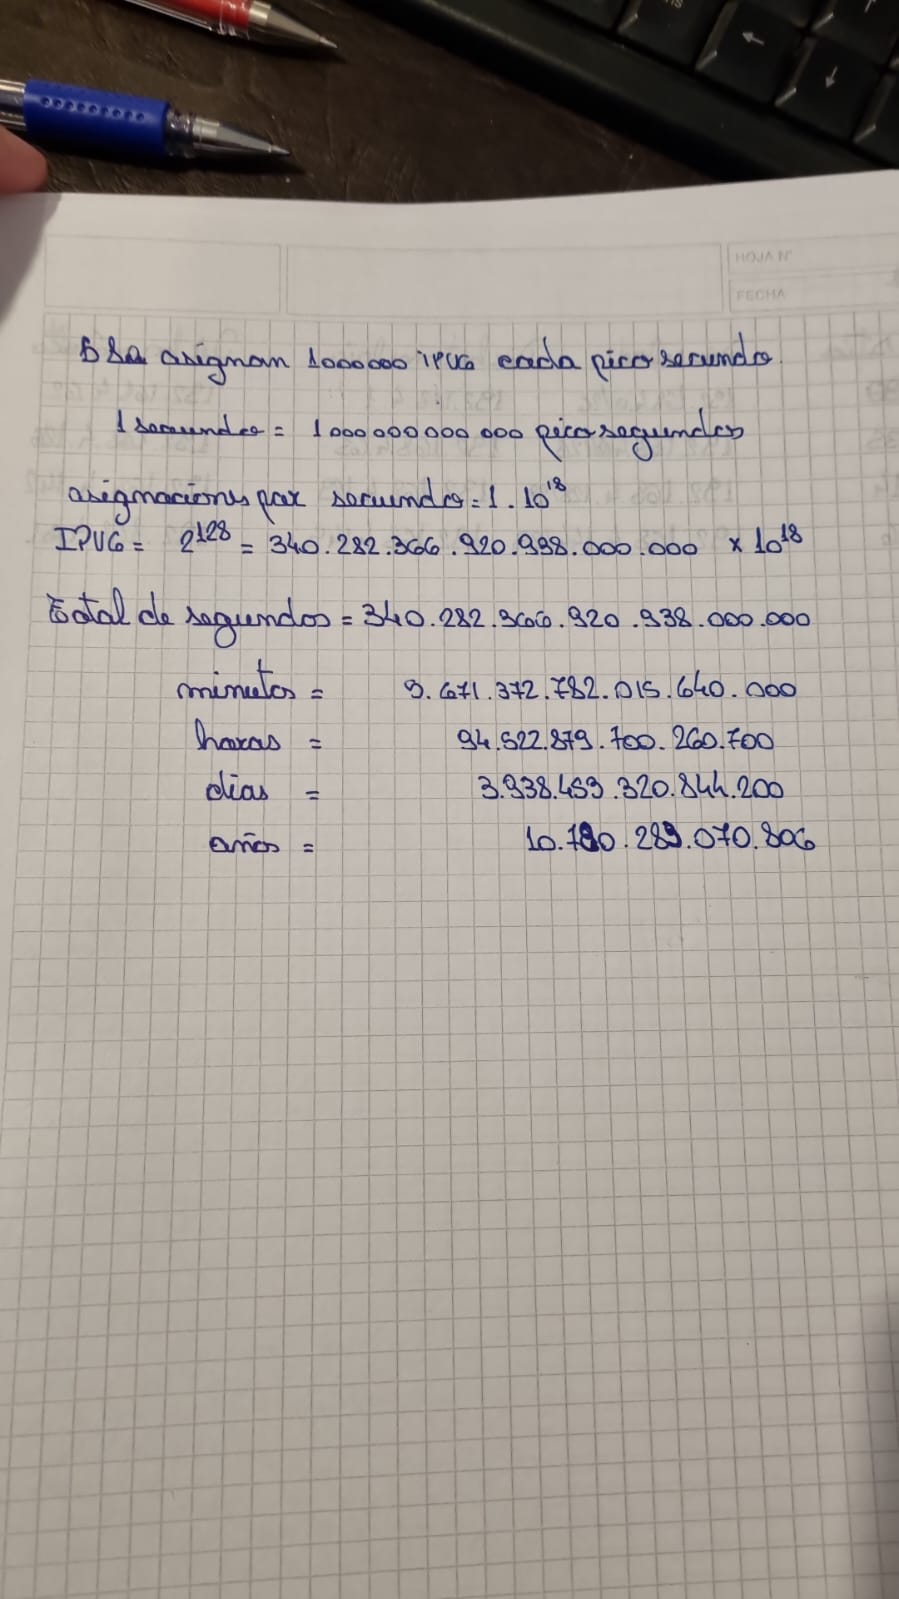 HOJA Nº
FECHA
Se asignan 1000000 IPV6 cada picosegundo.
1 segundo = 1 000 000 000 000 picosegundos
asignaciones par segundo = 1 . 10^18
IPV6 = 2^128 = 340.282.366.920.938.000.000 x 10^18
Total de segundos = 340.282.366.920.938.000.000
minutos = 5.671.372.782.015.640.000
horas = 94.522.879.700.260.700
dias = 3.938.453.320.844.200
años = 10.790.289.070.806